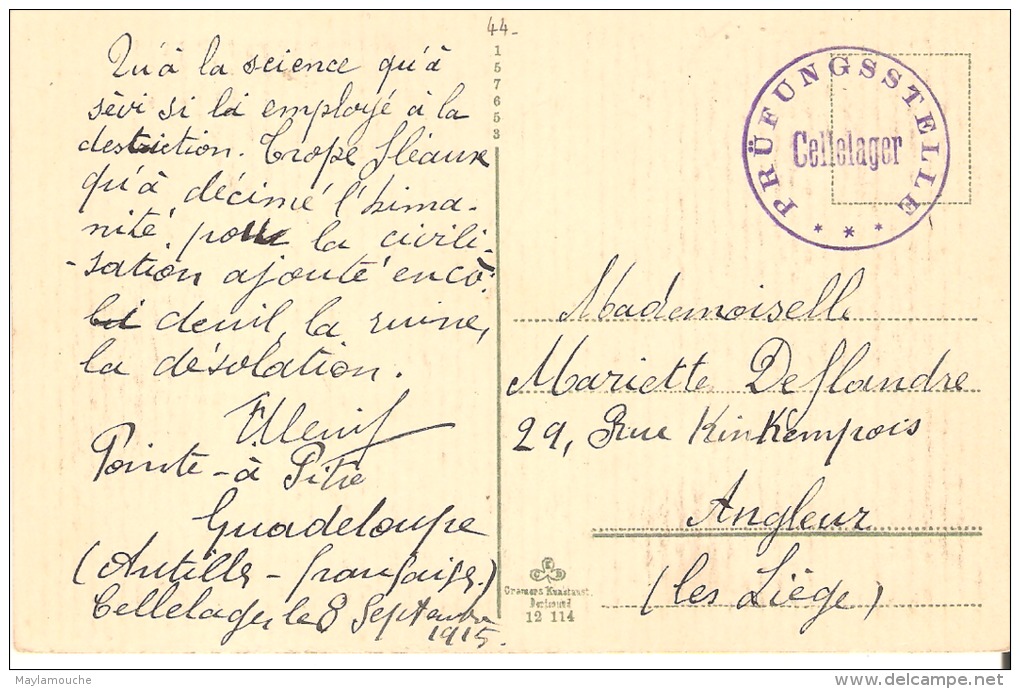 44-
1
5
7
6
5
3
Qu'à la science qu'à
sèvi si li employé à la
destriction. Trope fléaux
qu'à décimé l'hima-
nité, pour la civili-
-sation ajouté enco.
li deuil, la ruine,
la désolation.
Pointe-à Pitre
Guadeloupe
(Antilles-françaises)
Cellelager, le 8 Septembre
1915.
PRÜFUNGSSTELLE
Cellelager
* * *
Mademoiselle
Mariette Deflandre
29, Rue Kinkempois
Angleur
(les Liège)
C K D
Cramers Kunstanst.
Dortmund
12 114
Maylamouche
delcampe.net